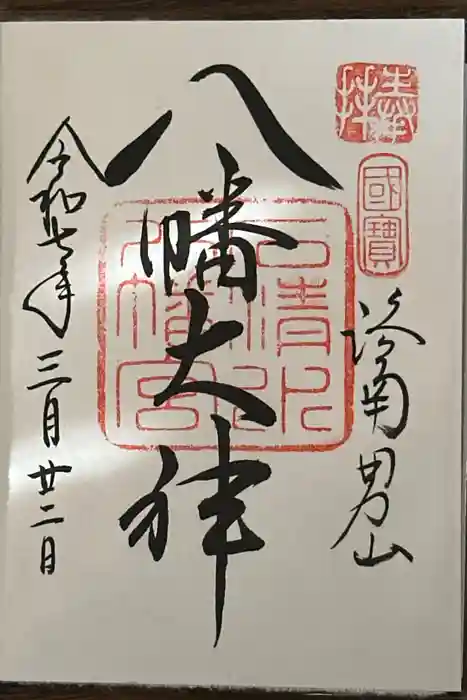 奉拝
國寶
洛南男山
八幡大神
石清水
八幡宮
令和七年三月廿二日